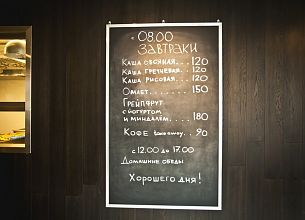 с 08.00
ЗАВТРАКИ
КАША ОВСЯНАЯ... 120
КАША ГРЕЧНЕВАЯ.. 120
КАША РИСОВАЯ... 120
ОМЛЕТ....... 150
ГРЕЙПФРУТ
С ЙОГУРТОМ
И МИНДАЛЕМ.... 180
КОФЕ take away.. 90
с 12.00 до 17.00
ДОМАШНИЕ ОБЕДЫ
ХОРОШЕГО ДНЯ!